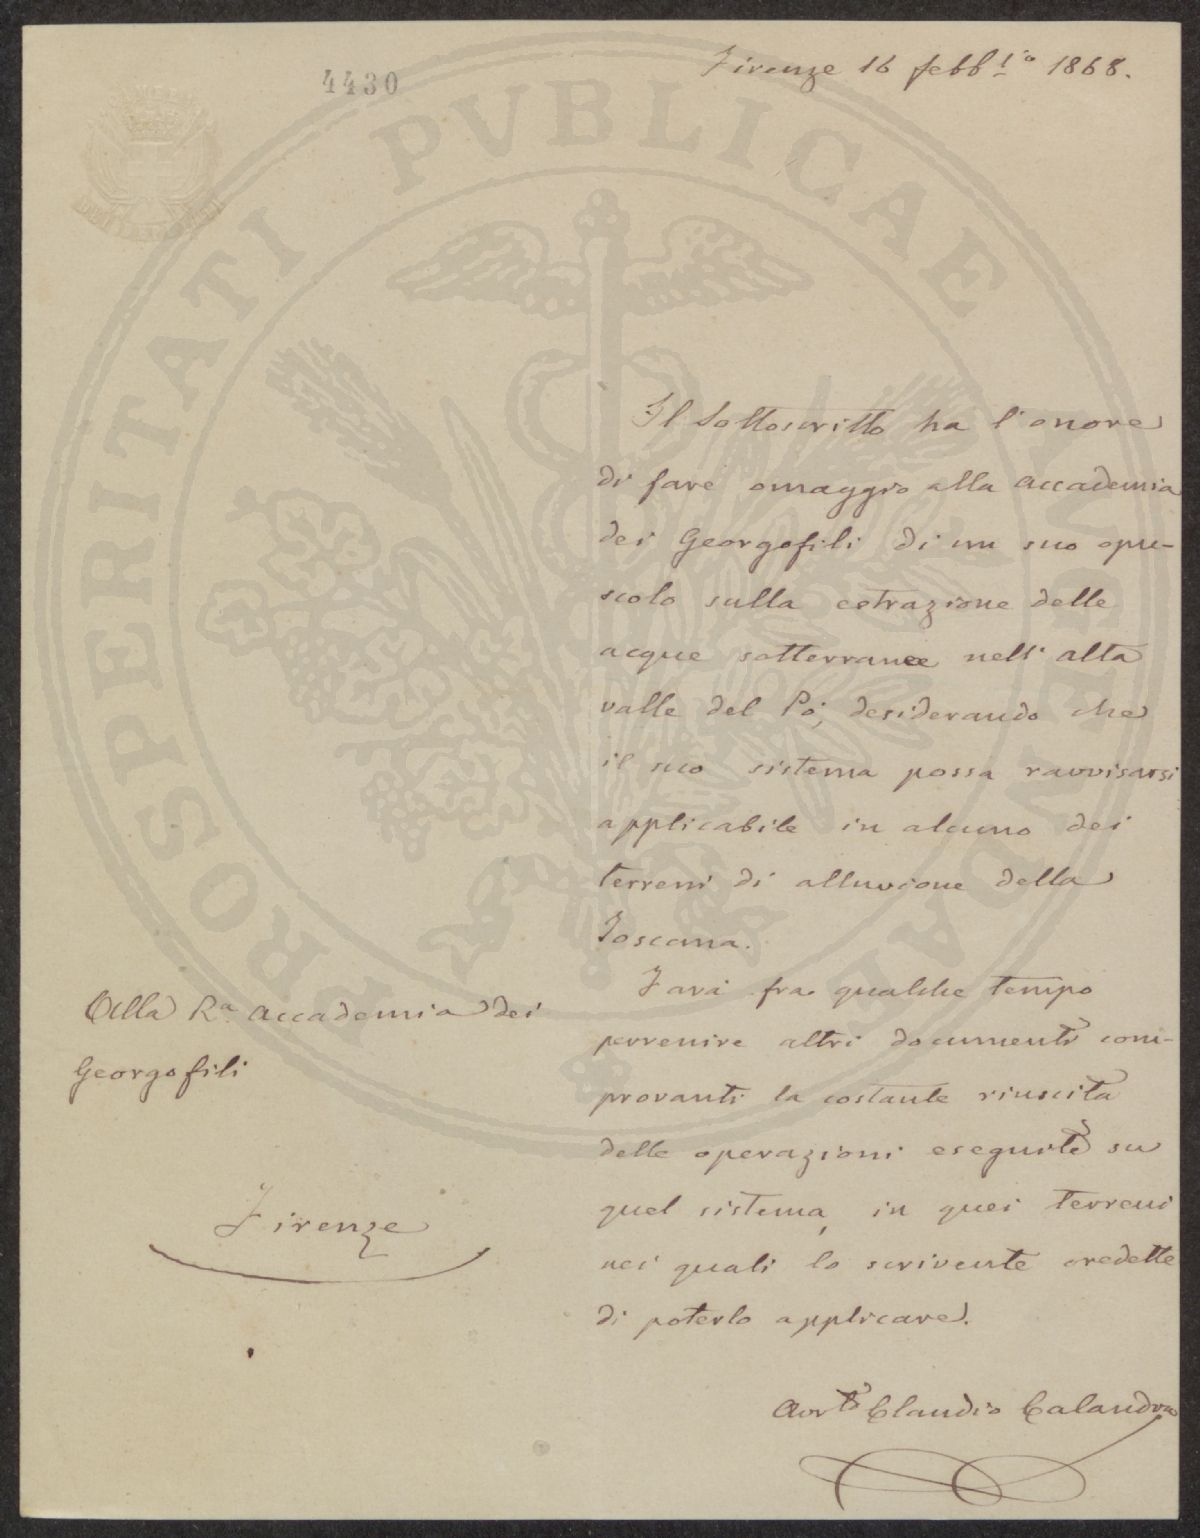 4430
Firenze 16 febb.io 1868.
PROSPERITATI PVBLICAE AVGENDAE
Il Sottoscritto ha l'onore
di fare omaggio alla Accademia
dei Georgofili di un suo opu-
scolo sulla estrazione delle
acque sotterranee nell'alta
valle del Po, desiderando che
il suo sistema possa ravvisarsi
applicabile in alcuno dei
terreni di alluvione della
Toscana.
Farà fra qualche tempo
pervenire altri documenti com-
provanti la costante riuscita
delle operazioni eseguite su
quel sistema, in quei terreni
nei quali lo scrivente credette
di poterlo applicare.
Alla Ra. Accademia dei
Georgofili
Firenze
Avv.to Claudio Calandra